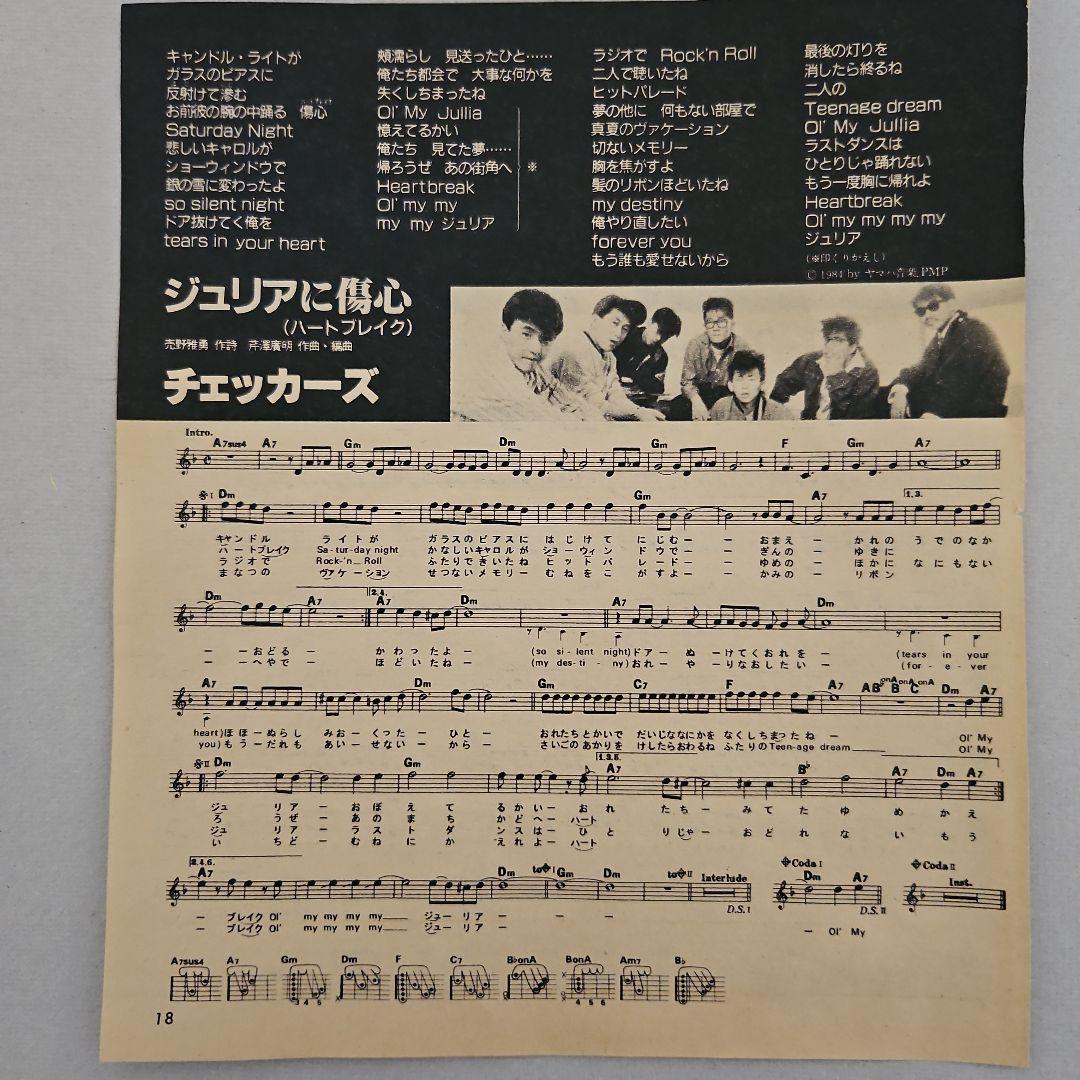 キャンドル・ライトが
ガラスのピアスに
反射けて滲む
お前彼の腕の中踊る 傷心
Saturday Night
悲しいキャロルが
ショーウィンドウで
銀の雪に変わったよ
so silent night
ドア抜けてく俺を
tears in your heart
頬濡らし 見送ったひと……
俺たち都会で 大事な何かを
失くしちまったね
Ol' My Jullia
憶えてるかい
俺たち 見てた夢……
帰ろうぜ あの街角へ ※
Heartbreak
Ol' my my
my my ジュリア
ラジオで Rock'n Roll
二人で聴いたね
ヒットパレード
夢の他に 何もない部屋で
真夏のヴァケーション
切ないメモリー
胸を焦がすよ
髪のリボンほどいたね
my destiny
俺やり直したい
forever you
もう誰も愛せないから
最後の灯りを
消したら終るね
二人の
Teenage dream
Ol' My Jullia
ラストダンスは
ひとりじゃ踊れない
もう一度胸に帰れよ
Heartbreak
Ol' my my my my
ジュリア
(※印くりかえし)
© 1984 by ヤマハ音楽, PMP
ジュリアに傷心
(ハートブレイク)
売野雅勇 作詩 芹澤廣明 作曲・編曲
チェッカーズ
Intro.
A7sus4 A7 Gm Dm Gm F Gm A7
Dm Gm A7 1.3.
キャンドル ライトが ガラスのピアスに はじけて にじむー おまえー かれの うでのなか
ハートブレイク Sa-tur-day night かなしいキャロルが ショーウィン ドウでー ぎんのー ゆきに
ラジオで Rock-'n Roll ふたりできいたね ヒットパ レードー ゆめのー ほかに なにもない
まなつの ヴァケーション せつないメモリー むねをこ がすよー かみのー リボン
Dm A7 2.4. A7 Dm A7 Dm
ーおどるー かわったよー (so si-lent night)ドアー ぬーけてくおれをー (tears in your
ーへやでー ほどいたねー (my des-ti-ny)おれー やーりなおしたいー (for-e-ver
A7 Dm Gm C7 F A7 AB♭ B C Dm A7
heart)ほほーぬらし みおーくったーひとー おれたちとかいで だいじななにかを なくしちまったねー Ol' My
you)もうーだれも あいーせないーからー さいごのあかりを けしたらおわるね ふたりのTeen-age dream Ol' My
Dm Gm 1.3.5. A7 B♭ A7 Dm A7
ジュ リアーおぼえて るかいーおれ たちーみてたゆめかえ
ろ うぜーあのまち かどへーハート
ジュ リアーラストダ ンスはーひと りじゃーおどれないもう
いちどーむねにか えれよーハート
2.4.6.
A7 Dm to I Gm Dm to II Interlude D.S.I
Coda I Dm A7 D.S.II
Coda II Inst.
ー ブレイク Ol' my my my my ジューリアー ー ー ー
ー ブレイク Ol' my my my my ジューリアー
ー Ol' My
A7sus4 A7 Gm Dm F C7 B♭onA BonA Am7 B♭
3 4 5
4 5 6
18